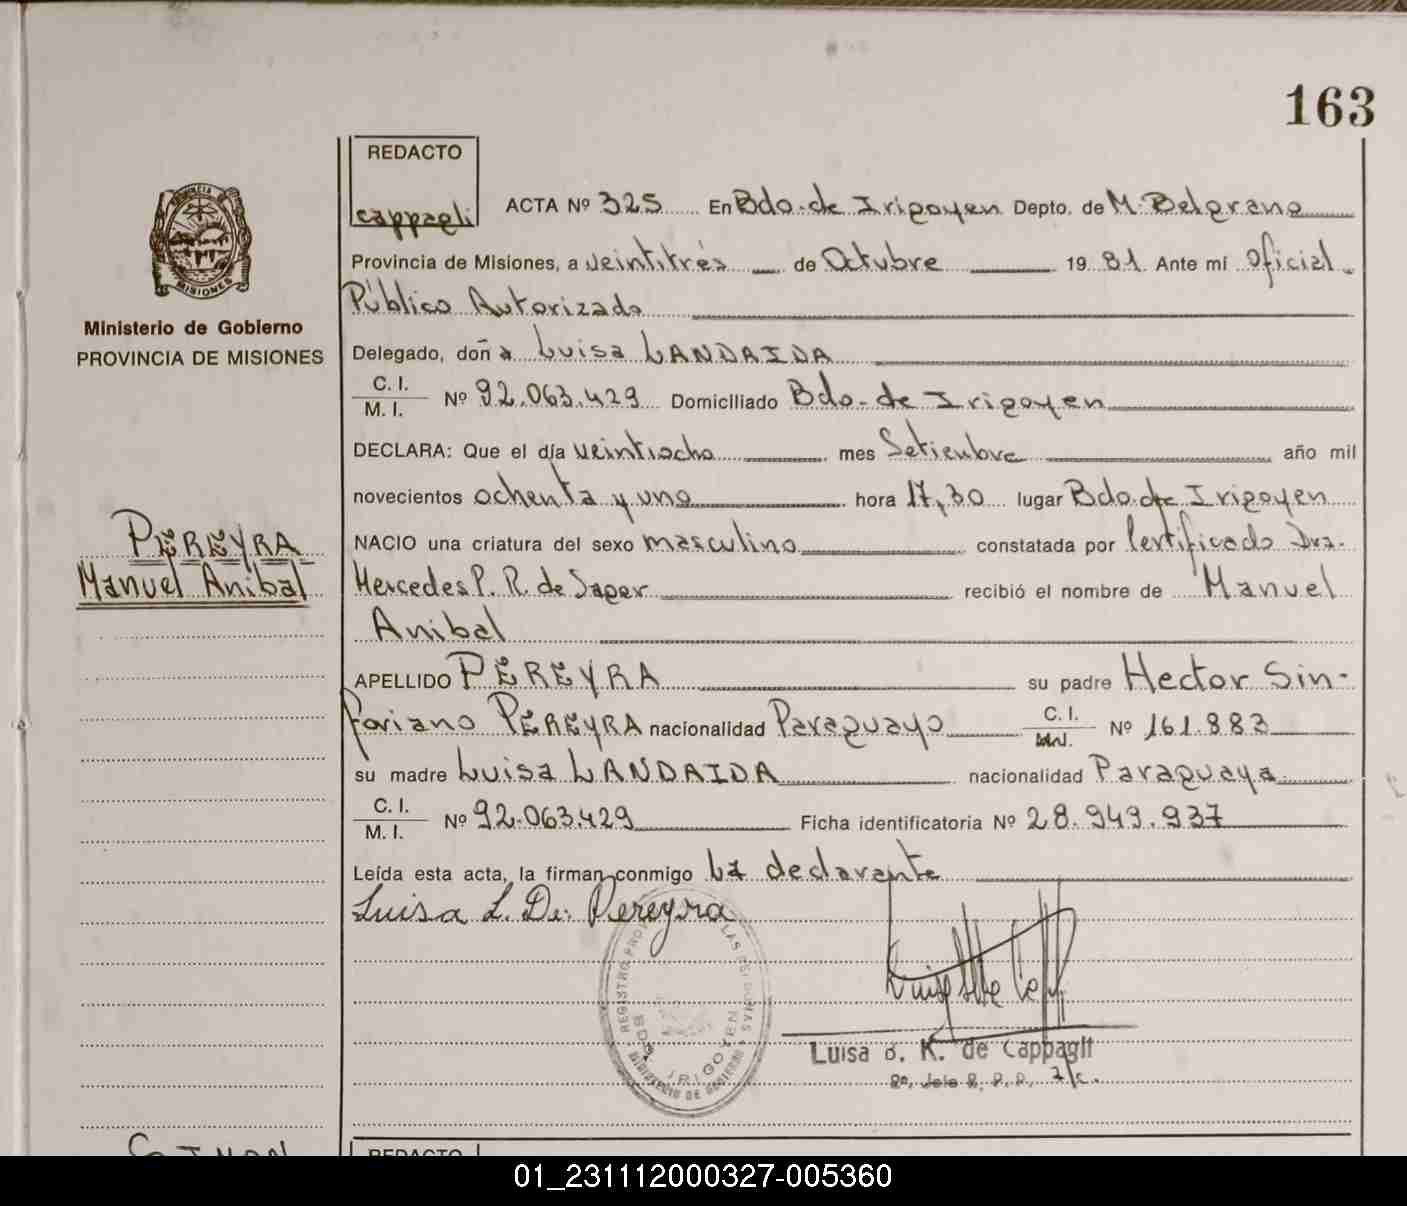 163
REDACTO
cappagli
ACTA Nº 325 En Bdo. de Irigoyen Depto. de M. Belgrano
Provincia de Misiones, a veintitrés de Octubre 1981 Ante mi Oficial
Público Autorizado
Delegado, doña Luisa LANDAIDA
C. I.
M. I. Nº 92.063.429 Domiciliado Bdo. de Irigoyen
DECLARA: Que el día veintiocho mes Setiembre año mil
novecientos ochenta y uno hora 17,30 lugar Bdo. de Irigoyen
NACIO una criatura del sexo masculino constatada por Certificado Dra.
Mercedes P. R. de Saper recibió el nombre de Manuel
Anibal
APELLIDO PEREYRA su padre Hector Sin-
foriano PEREYRA nacionalidad Paraguayo C. I. Nº 161.883
su madre Luisa LANDAIDA nacionalidad Paraguaya
C. I.
M. I. Nº 92.063.429 Ficha identificatoria Nº 28.949.937
Leída esta acta, la firman conmigo La declarante
Luisa L. De Pereyra
Luisa K. de Cappagli
PROVINCIA DE
MISIONES
Ministerio de Gobierno
PROVINCIA DE MISIONES
PEREYRA
Manuel Anibal
REGISTRO PROV LAS PERSONAS
BDO. IRIGOYEN
MINISTERIO DE GOBIERNO
REDACTO
01_231112000327-005360